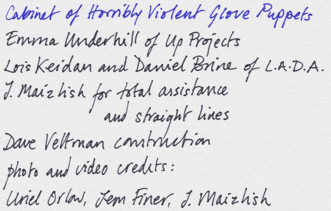 Cabinet of Horribly Violent Glove Puppets
Emma Underhill of Up Projects
Lois Keidan and Daniel Brine of L.A.D.A.
J. Maizlish for total assistance
and straight lines
Dave Veltman construction
photo and video credits:
Uriel Orlow, Jem Finer, J. Maizlish